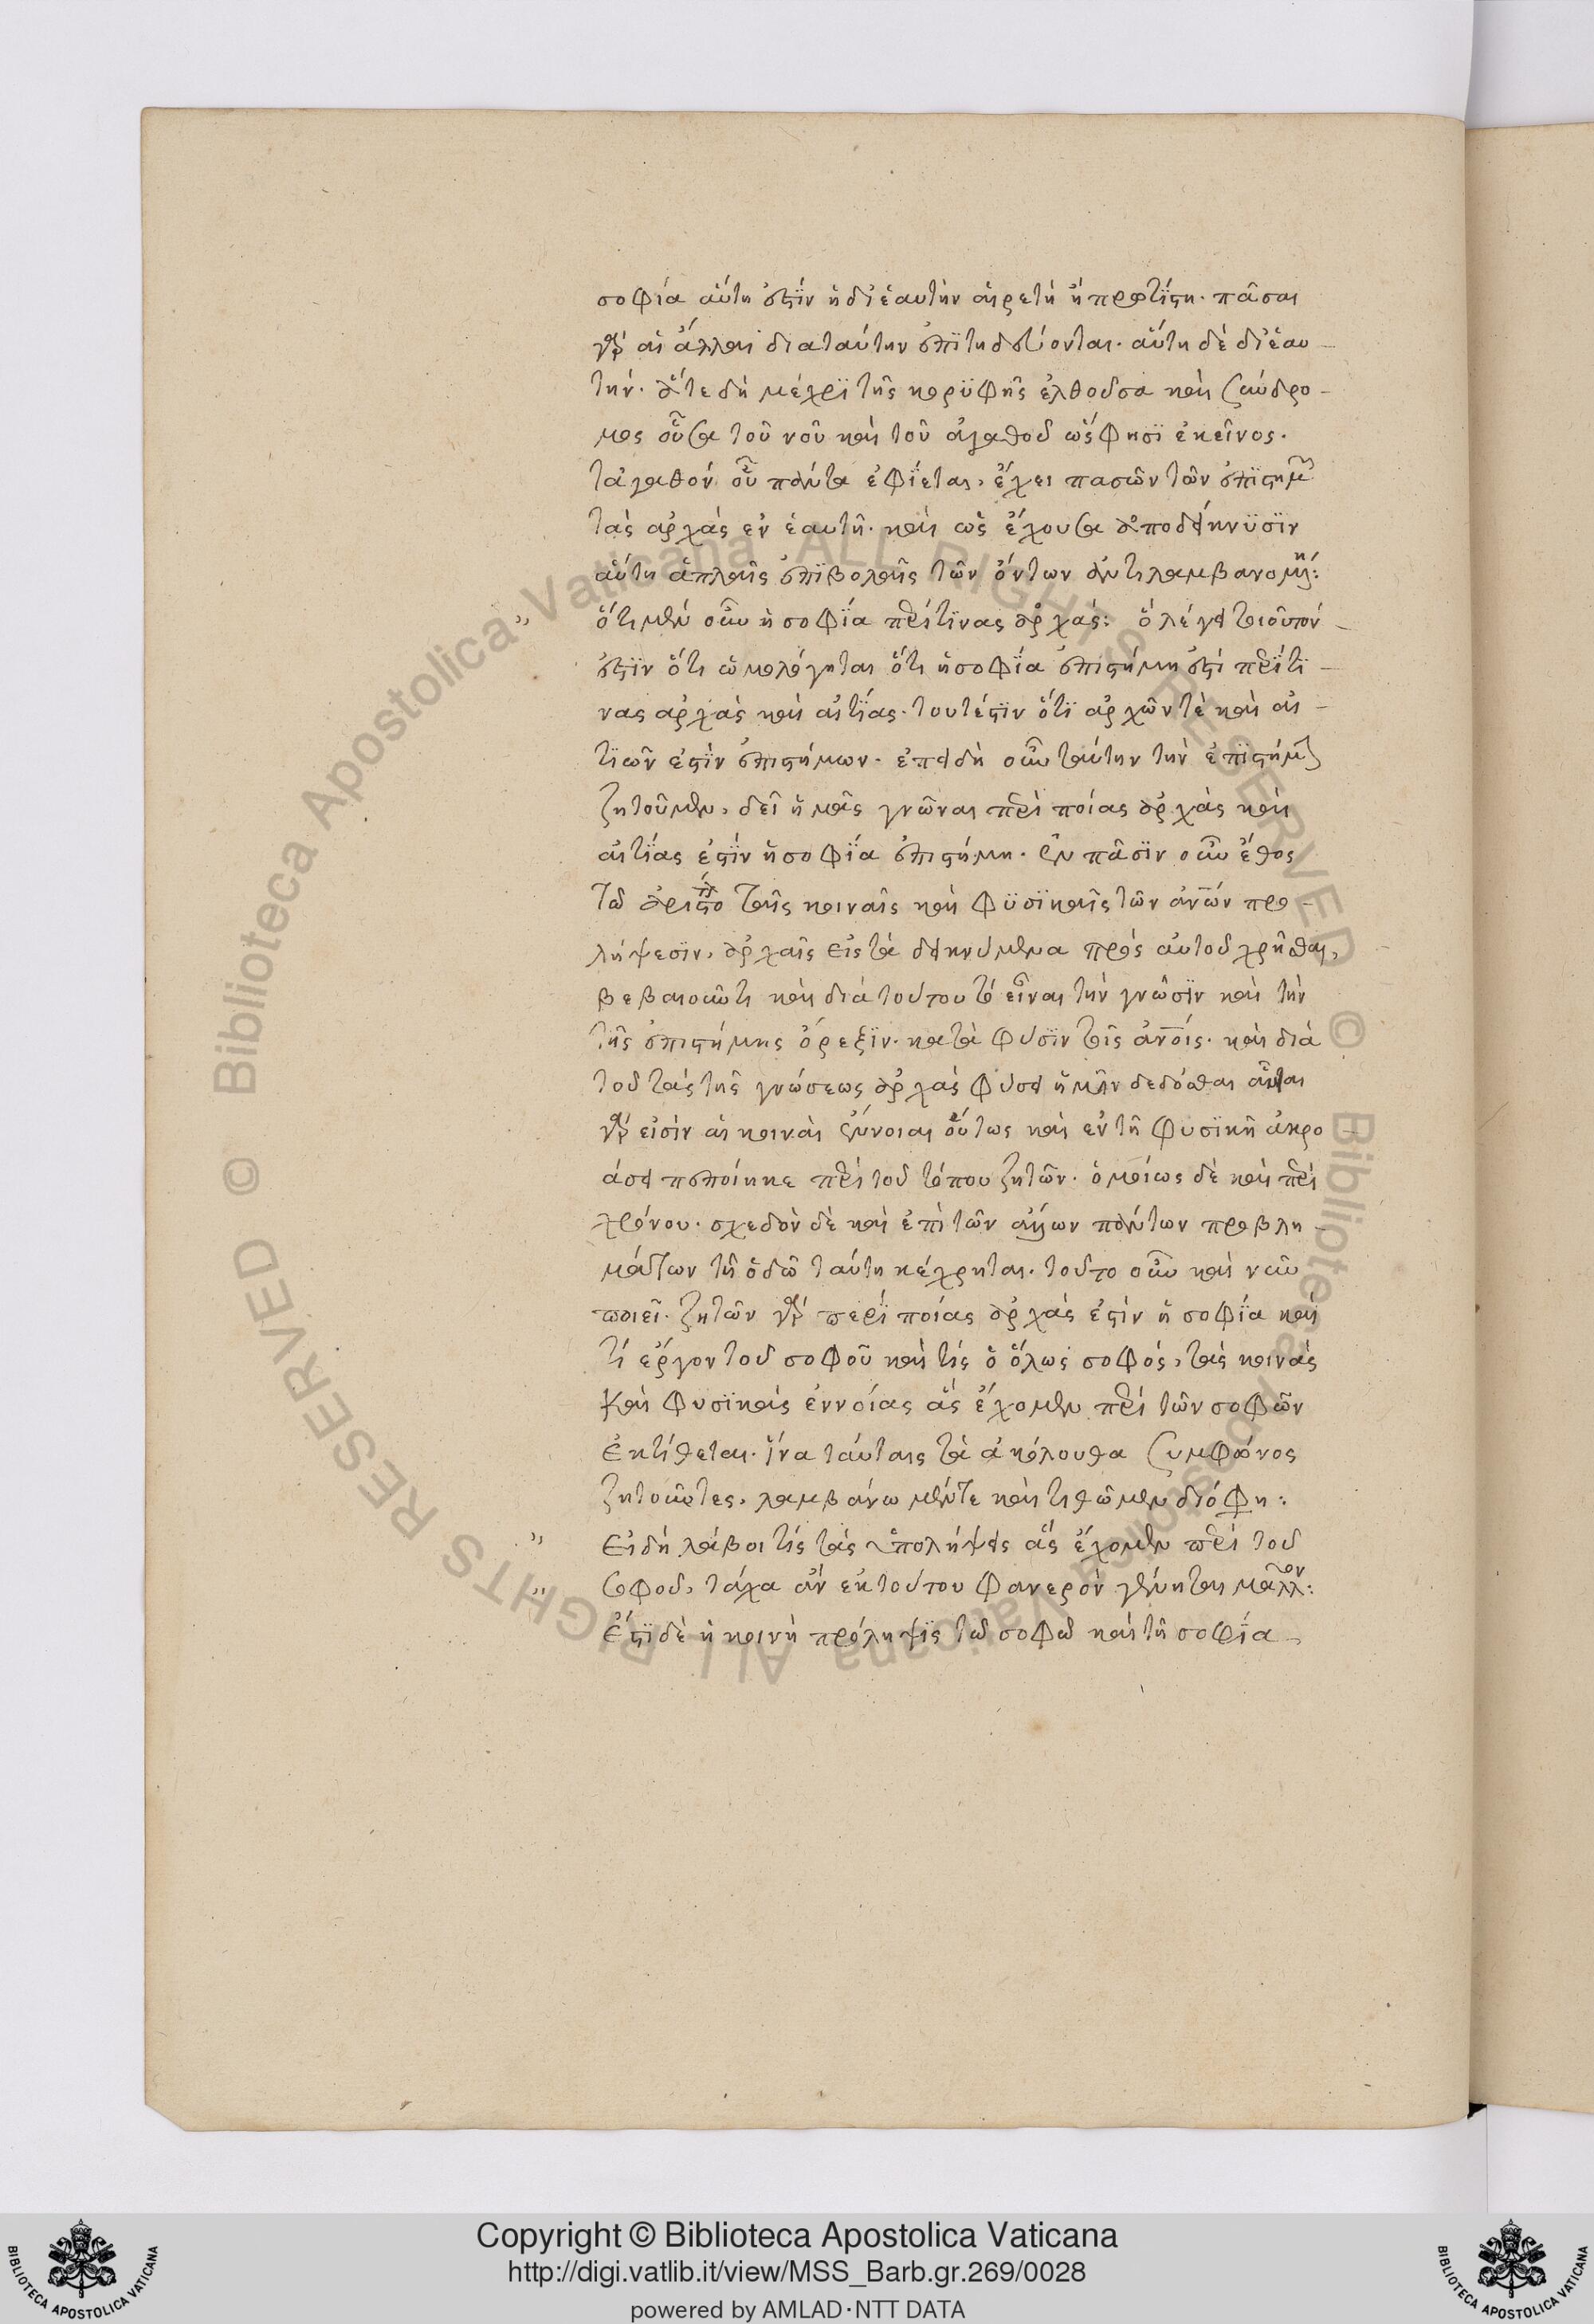 σοφία αὕτη ἐστὶν ἡ δι' ἑαυτὴν αἱρετὴ ἡ πρωτίστη. πᾶσαι
γὰρ αἱ ἄλλαι διαταύτην ἐπιτηδεύονται. αὕτη δὲ δι' ἑαυ-
τήν. ἅτε δὴ μέχρι τῆς κορυφῆς ἐλθοῦσα καὶ σύνδρο-
μος οὖσα τοῦ νοῦ καὶ τοῦ ἀγαθοῦ ὥς φησι ἐκεῖνος.
τἀγαθόν οὗ πάντα ἐφίεται, ἔχει πασῶν τῶν ἐπιστημῶν
τὰς ἀρχάς ἐν ἑαυτῆ. καὶ ὡς ἔχουσα ἀποδείκνυσιν
αὕτη ἁπλαῖς ἐπιβολαῖς τῶν ὄντων ἀντιλαμβανομένη:
ὅτι μὲν οὖν ἡ σοφία περίτινας ἀρχάς: ὃ λέγει τοιοῦτον
ἐστὶν ὅτι ὡμολόγηται ὅτι ἡ σοφία ἐπιστήμη ἐστὶ περίτι-
νας ἀρχὰς καὶ αἰτίας. τουτέστιν ὅτι ἀρχῶν τὲ καὶ αἰ-
τιῶν ἐστὶν ἐπιστήμων. ἐπειδὴ οὖν ταύτην τὴν ἐπιστήμην
ζητοῦμεν, δεῖ ἡμᾶς γνῶναι περὶ ποίας ἀρχὰς καὶ
αἰτίας ἐστὶν ἡ σοφία ἐπιστήμη. ἐν πᾶσιν οὖν ἔθος
τῶ ἀριστο ταῖς κοιναῖς καὶ φυσικαῖς τῶν ἀνῶν προ-
λήψεσιν, ἀρχαῖς εἰς τὰ δεικνύμενα πρὸς αὐτοῦ χρῆσθαι,
βεβαιοῦντι καὶ διὰ τούτου τὸ εἶναι τὴν γνῶσιν καὶ τὴν
τῆς ἐπιστήμης ὄρεξιν. κατὰ φύσιν τοῖς ἀνοίς. καὶ διὰ
τοῦ τὰς τῆς γνώσεως ἀρχὰς φύσει ἡμῖν δεδόσθαι αὗται
γὰρ εἰσὶν αἱ κοιναὶ ἔννοιαι οὕτως καὶ ἐν τῆ φυσικῆ ἀκρο-
άσει πεποίηκε περὶ τοῦ τόπου ζητῶν. ὁμοίως δὲ καὶ περὶ
χρόνου. σχεδὸν δὲ καὶ ἐπὶ τῶν ἄλλων πάντων προβλη-
μάτων τῆ ὁδῶ ταύτη κέχρηται. τοῦτο οὖν καὶ νῦν
ποιεῖ. ζητῶν γὰρ περὶ ποίας ἀρχάς ἐστὶν ἡ σοφία καὶ
τί ἔργον τοῦ σοφοῦ καὶ τίς ὁ ὅλως σοφός, τὰς κοινὰς
καὶ φυσικὰς ἐννοίας ἃς ἔχομεν περὶ τῶν σοφῶν
ἐκτίθεται. ἵνα ταύταις τὰ ἀκόλουθα συμφώνος
ζητοῦντες, λαμβάνωμέντε καὶ τιθῶμεν διό φη:
Εἰ δὴ λάβοι τίς τὰς ὑπολήψεις ἃς ἔχομεν περὶ τοῦ
σοφοῦ, τάχα ἂν ἐκ τούτου φανερὸν γένηται μᾶλλον:
Ἔστι δὲ ἡ κοινὴ πρόληψις τῶ σοφῶ καὶ τῆ σοφία
Copyright © Biblioteca Apostolica Vaticana
http://digi.vatlib.it/view/MSS_Barb.gr.269/0028
powered by AMLAD·NTT DATA